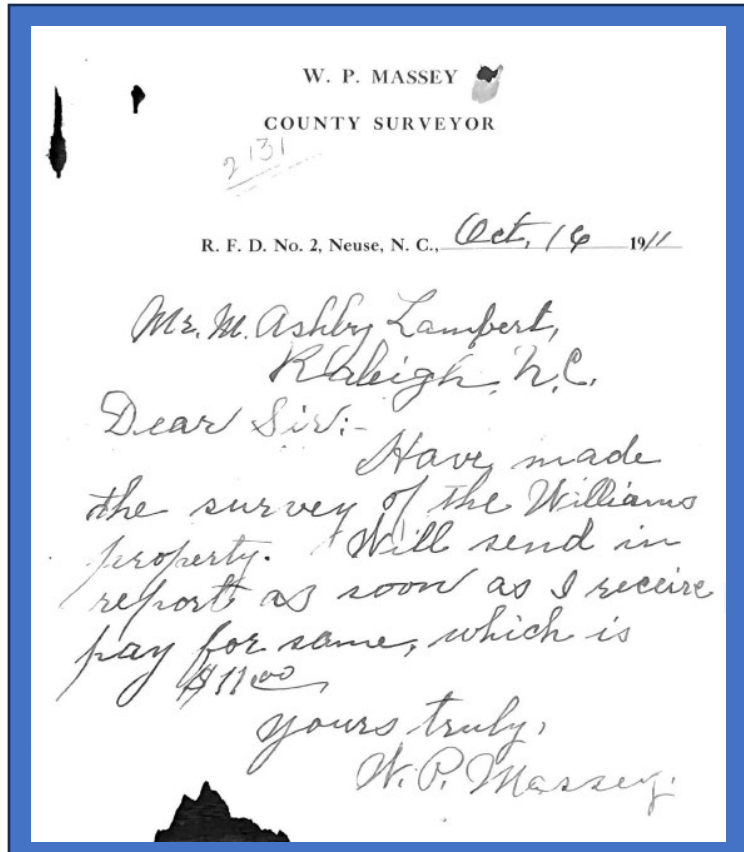 W. P. MASSEY
COUNTY SURVEYOR
2131
R. F. D. No. 2, Neuse, N. C., Oct, 16 1911
Mr. M. Ashby Lambert,
Raleigh, N.C.
Dear Sir:-
Have made
the survey of the Williams
property. Will send in
report as soon as I receive
pay for same, which is
$11.00
Yours truly,
W. P. Massey.